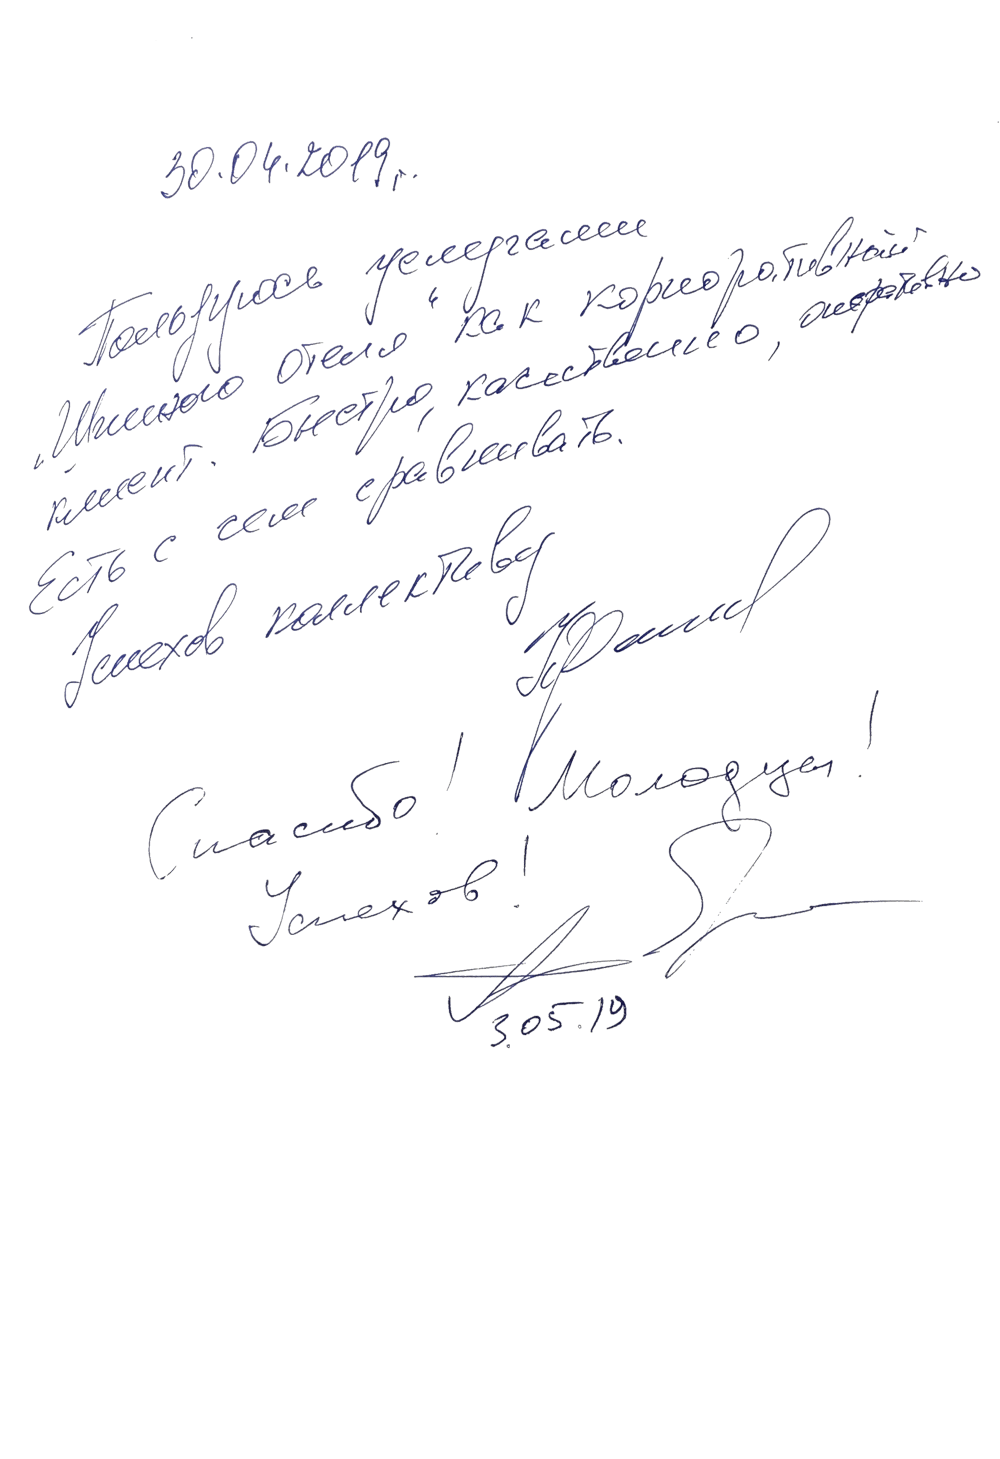 30.04.2019г.
Пользуюсь услугами
„Шинного отеля“ как корпоративный
клиент. Быстро, качественно, оперативно
Есть с чем сравнивать.
Успехов коллективу
Спасибо! Молодцы!
Успехов!
3.05.19